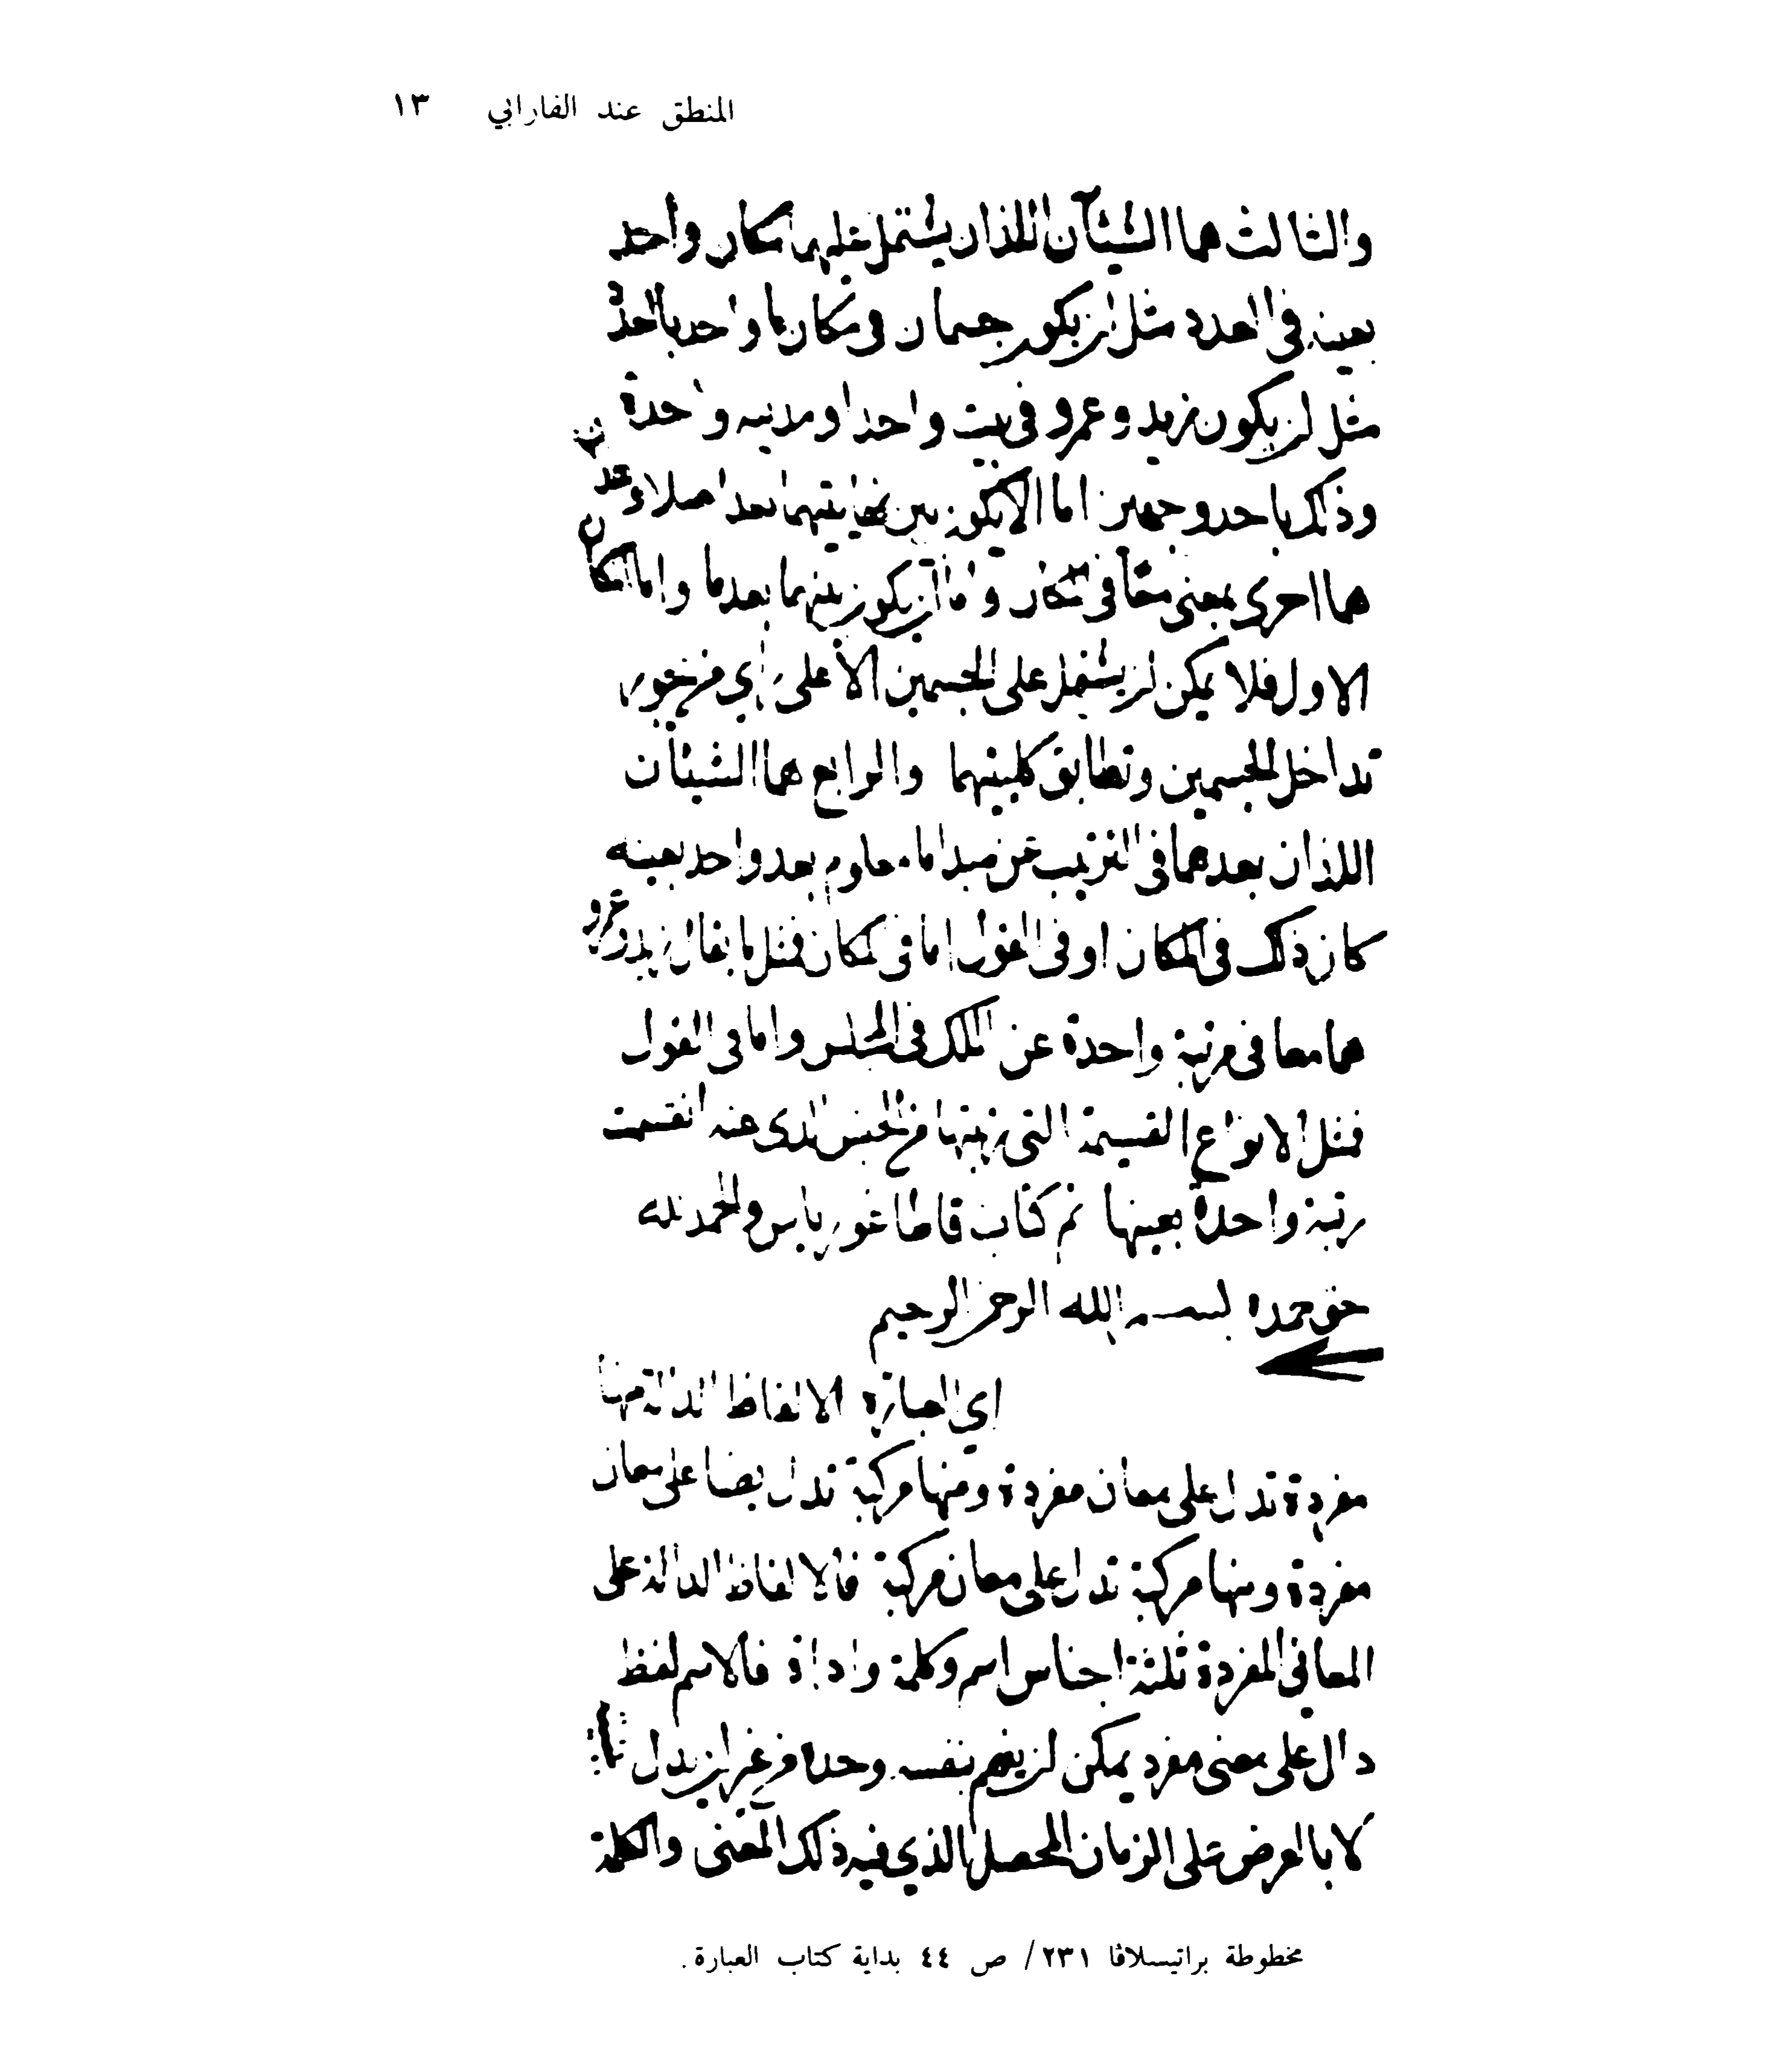 المنطق عند الفارابي ١٣
والثالث هما الشيئآن اللذان يشتمل عليهما مكان واحد
بعينه في العدد مثل ان يكون جسمان في مكان ما واحد بالعدد
مثل ان يكون زيد وعمرو في بيت واحد او مدينه واحدة
وذلك باحد وجهين اما الا يكون بين نهايتيهما بعد اصلا وعند
هما احرى بمعنى معًا في مكان واما ان يكون بينهما بعد ما واما المكان
الاول فلا يمكن ان يشتمل على الجسمين الا على راي من جوز
تداخل الجسمين وتطابق كليتيهما والرابع هما الشيئان
اللذان بعدهما في الترتيب عن مبدا ما معلوم بعد واحد بعينه
كان ذلك في المكان او في القول اما في المكان فمثل ما يقال زيد وعمرو
هما معا في مرتبة واحدة عن الملك في المجلس واما في القول
فمثل الانواع القسيمة التي رتبتها من الجنس الذي عنه انقسمت
رتبة واحدة بعينها تم كتاب قاطاغورياس والحمد لله
حق حمده بسم الله الرحمن الرحيم
اي العبارة الالفاظ الدالة منها
مفردة تدل على معان مفردة ومنها مركبة تدل ايضا على معان
مفردة ومنها مركبة تدل على معان مركبة فالالفاظ الدالة على
المعاني المفردة ثلثة اجناس اسم وكلمة واداة فالاسم لفظ
دال على معنى مفرد يمكن ان يفهم بنفسه وحده من غير ان يدل
لا بالعرض على الزمان المحصل الذي فيه ذلك المعنى والكلمة
مخطوطة براتيسلاڤا ٢٣١/ ص ٤٤ بداية كتاب العبارة.